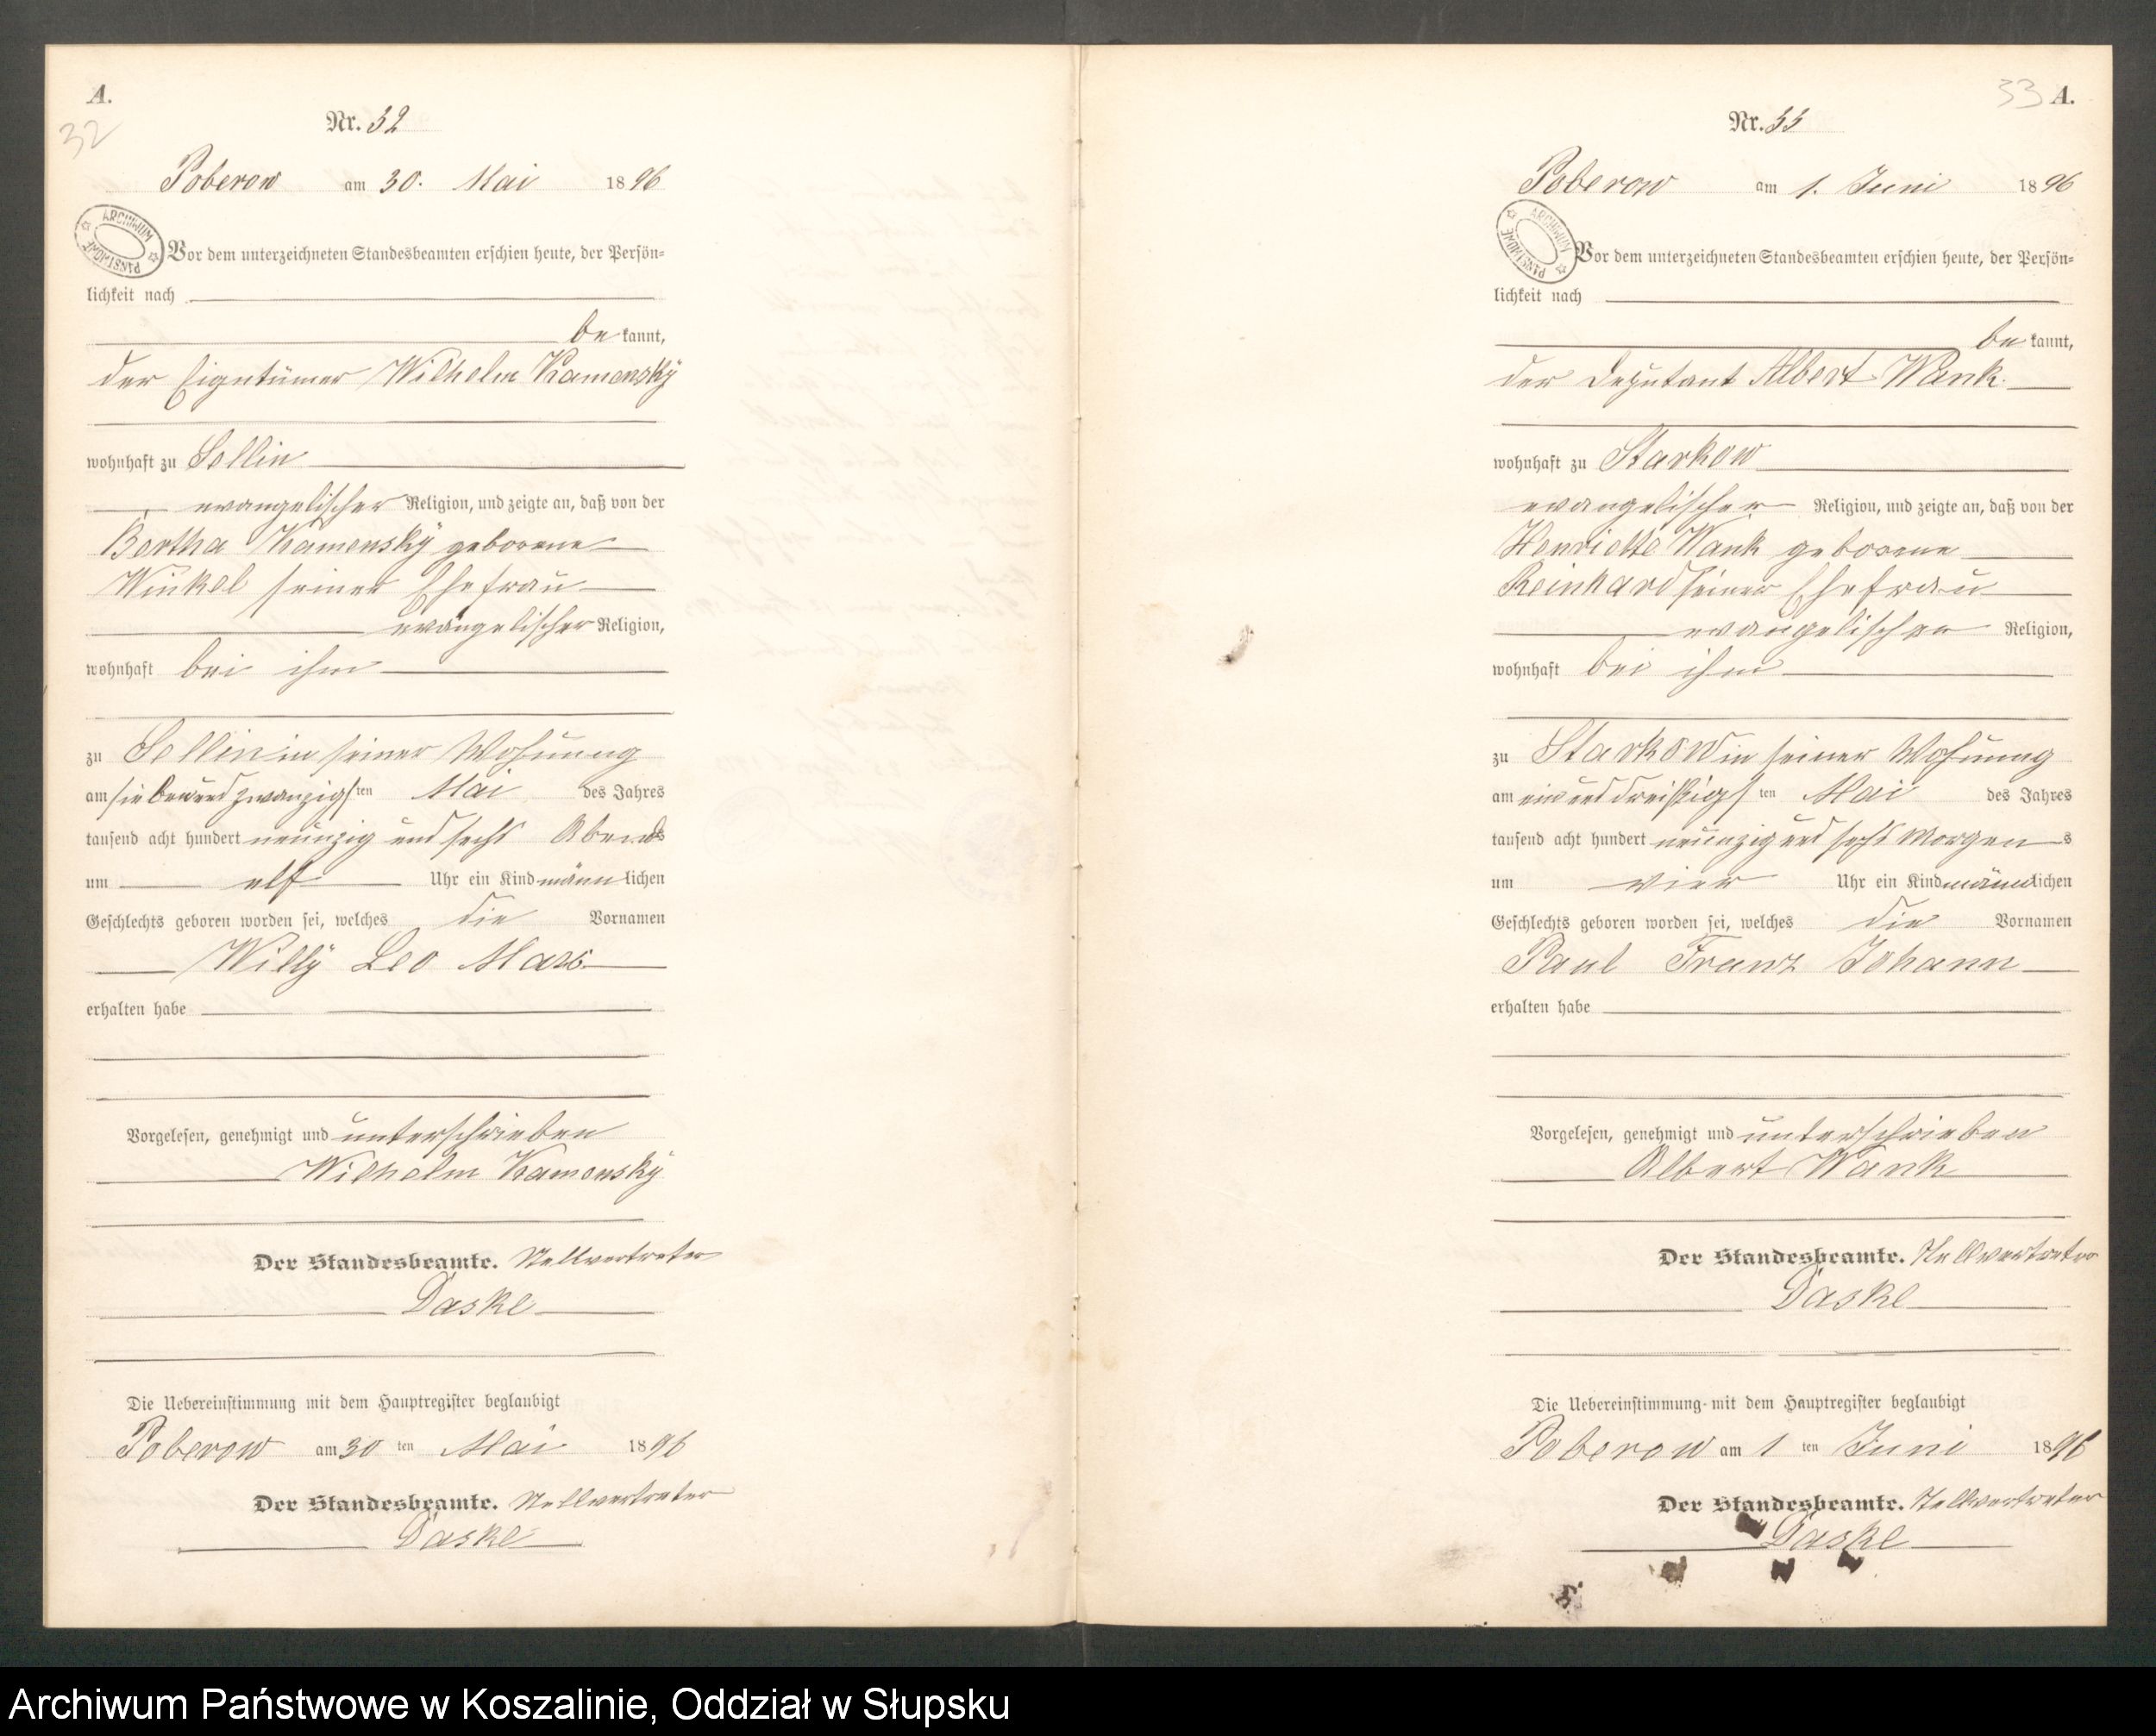 A.
32
Nr. 32
Poberow am 30. Mai 1896
ARCHIWUM PAŃSTWOWE
Vor dem unterzeichneten Standesbeamten erschien heute, der Persön-
lichkeit nach
be kannt,
der Eigentümer Wilhelm Kamensky
wohnhaft zu Sellin
evangelischer Religion, und zeigte an, daß von der
Bertha Kamensky geborene
Winkel seiner Ehefrau
evangelischer Religion,
wohnhaft bei ihm
zu Sellin in seiner Wohnung
am siebenundzwanzigsten Mai des Jahres
tausend acht hundert neunzig und sechs Abends
um elf Uhr ein Kind männlichen
Geschlechts geboren worden sei, welches die Vornamen
Willy Leo Max
erhalten habe
Vorgelesen, genehmigt und unterschrieben
Wilhelm Kamensky
Der Standesbeamte. Stellvertreter
Daske
Die Uebereinstimmung mit dem Hauptregister beglaubigt
Poberow am 30 ten Mai 1896
Der Standesbeamte. Stellvertreter
Daske
33 A.
Nr. 33
Poberow am 1. Juni 1896
ARCHIWUM PAŃSTWOWE
Vor dem unterzeichneten Standesbeamten erschien heute, der Persön-
lichkeit nach
be kannt,
der Deputant Albert Wank
wohnhaft zu Starkow
evangelischer Religion, und zeigte an, daß von der
Henriette Wank geborene
Reinhard seiner Ehefrau
evangelischer Religion,
wohnhaft bei ihm
zu Starkow in seiner Wohnung
am ein und dreißigsten Mai des Jahres
tausend acht hundert neunzig und sechs Morgens
um vier Uhr ein Kind männlichen
Geschlechts geboren worden sei, welches die Vornamen
Paul Franz Johann
erhalten habe
Vorgelesen, genehmigt und unterschrieben
Albert Wank
Der Standesbeamte. Stellvertreter
Daske
Die Uebereinstimmung mit dem Hauptregister beglaubigt
Poberow am 1 ten Juni 1896
Der Standesbeamte. Stellvertreter
Daske
Archiwum Państwowe w Koszalinie, Oddział w Słupsku